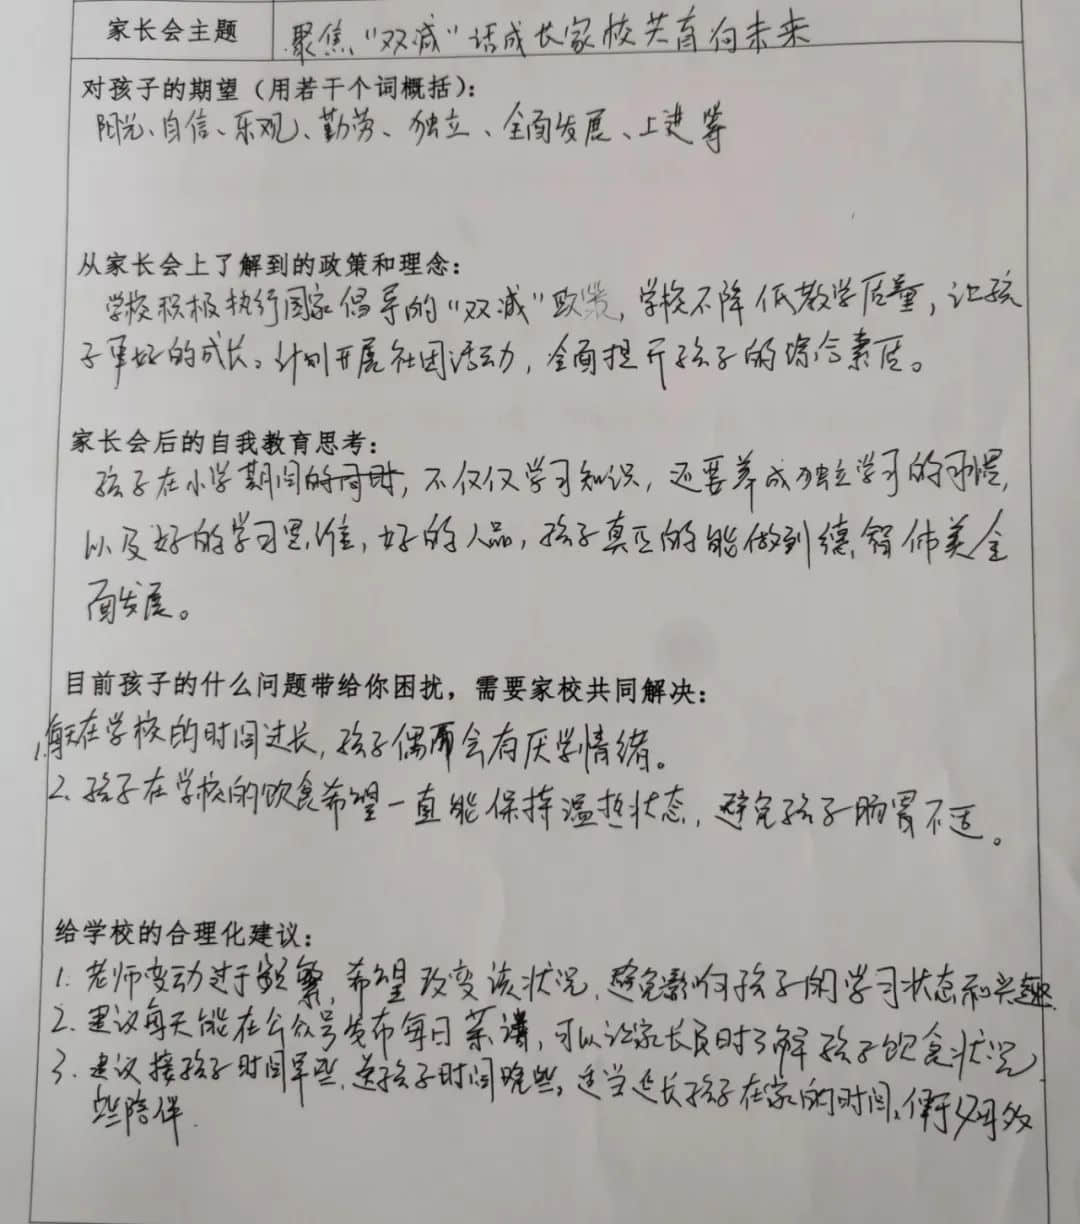 家长会主题 聚焦“双减”话成长家校共育向未来
对孩子的期望（用若干个词概括）：
阳光、自信、乐观、勤劳、独立、全面发展、上进等
从家长会上了解到的政策和理念：
学校积极执行国家倡导的“双减”政策，学校不降低教学质量，让孩
子更好的成长。计划开展社团活动，全面提升孩子的综合素质。
家长会后的自我教育思考：
孩子在小学期间的同时，不仅仅学习知识，还要养成独立学习的习惯，
以及好的学习思维，好的人品，孩子真正的能做到德智体美全
面发展。
目前孩子的什么问题带给你困扰，需要家校共同解决：
1.每天在学校的时间过长，孩子偶而会有厌学情绪。
2.孩子在学校的饮食希望一直能保持温热状态，避免孩子肠胃不适。
给学校的合理化建议：
1.老师变动过于频繁，希望改变该状况，避免影响孩子的学习状态和兴趣.
2.建议每天能在公众号发布每日菜谱，可以让家长及时了解孩子饮食状况
3.建议接孩子时间早些，送孩子时间晚些，适当延长孩子在家的时间，便于父母多
些陪伴.